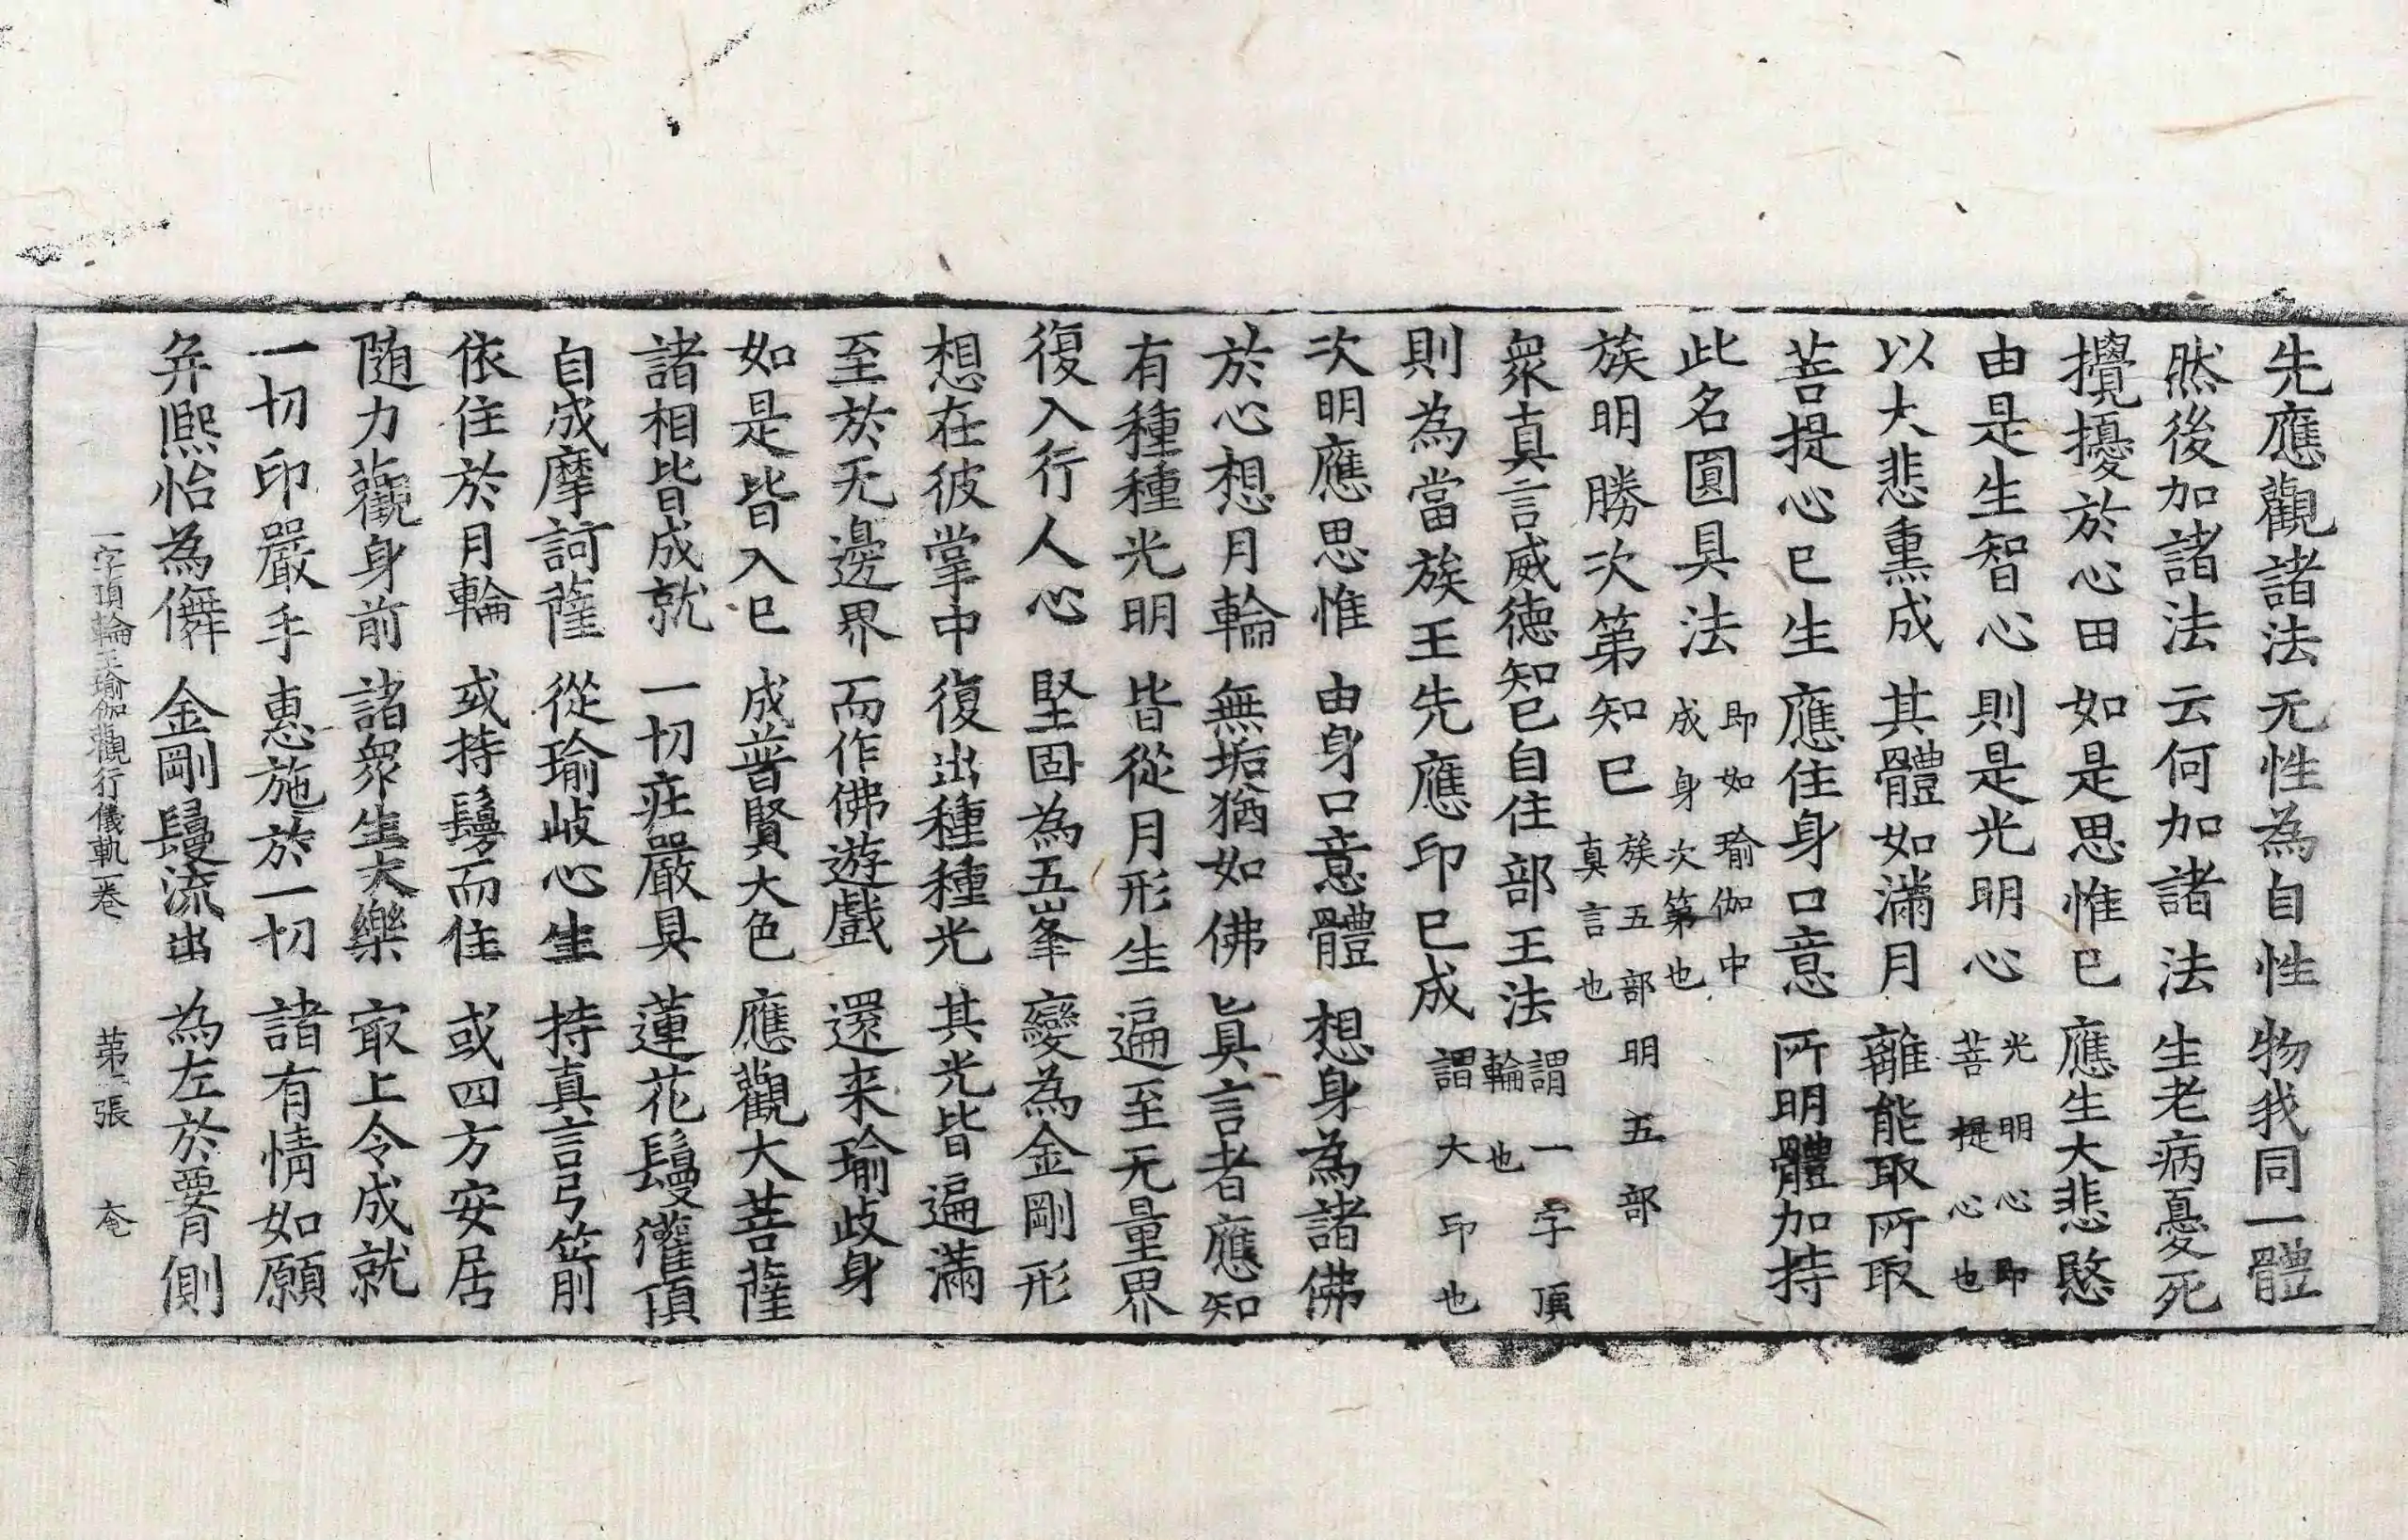 先應觀諸法 无性為自性 物我同一體
然後加諸法 云何加諸法 生老病憂死
攪擾於心田 如是思惟已 應生大悲愍
由是生智心 則是光明心 光明心即菩提心也
以大悲熏成 其體如滿月 離能取所取
菩提心已生 應住身口意 所明體加持
此名圓具法 即如瑜伽中成身次第也
族明勝次第 知已 族五部明五部真言也
衆真言威德 知已自住部王法 謂一字頂輪也
則為當族王 先應印已成 謂大印也
次明應思惟 由身口意體 想身為諸佛
於心想月輪 無垢猶如佛 真言者應知
有種種光明 皆從月形生 遍至无量界
復入行人心 堅固為五峯 變為金剛形
想在彼掌中 復出種種光 其光皆遍滿
至於无邊界 而作佛遊戲 還来瑜歧身
如是皆入已 成普賢大色 應觀大菩薩
諸相皆成就 一切莊嚴具 蓮花鬘灌頂
自成摩訶薩 從瑜歧心生 持真言弓箭
依住於月輪 或持鬘而住 或四方安居
随力觀身前 諸衆生大樂 㝡上令成就
一切印嚴手 惠施於一切 諸有情如願
弁熈怡為儛 金剛鬘流出 為左於要側
一字頂輪王瑜伽觀行儀軌一卷 第二張